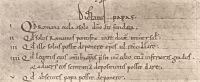 Dictatus pape.
Qd Romana ecclesia a solo dno sit fundata.
Qd solus Romanus pontifex iure dicat universalis.
Qd ille solus possit deponere epos vel reconciliare.
Qd legatus eius omnibus epis presit in concilio etiam inferioris gradus.
et adversus eos sententiam depositionis possit dare.
Qd absentes papa possit deponere.